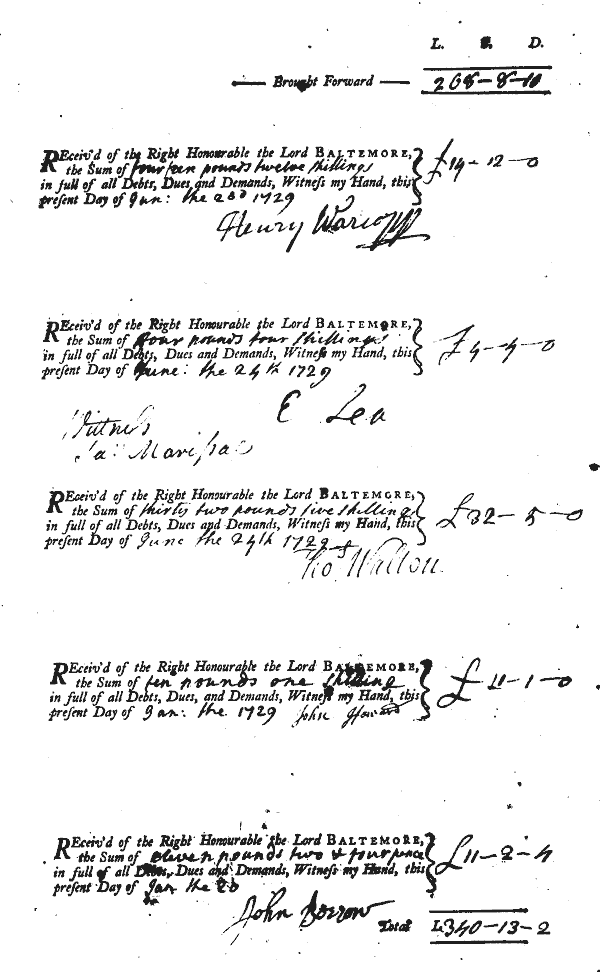 L. S. D.
Brought Forward 268-8-10
REceiv'd of the Right Honourable the Lord BALTEMORE,
the Sum of fourteen pounds twelve shillings £14-12-0
in full of all Debts, Dues and Demands, Witness my Hand, this
present Day of Jan: the 23d 1729
Henry
REceiv'd of the Right Honourable the Lord BALTEMORE,
the Sum of four pounds four shillings £4-4-0
in full of all Debts, Dues and Demands, Witness my Hand, this
present Day of June: the 24th 1729
E Lea
Witness
Ja:
REceiv'd of the Right Honourable the Lord BALTEMORE,
the Sum of thirty two pounds five shillings £32-5-0
in full of all Debts, Dues and Demands, Witness my Hand, this
present Day of June the 24th 1729
Tho Walton
REceiv'd of the Right Honourable the Lord BALTEMORE,
the Sum of ten pounds one shilling £
in full of all Debts, Dues, and Demands, Witness my Hand, this
present Day of Jan: the 1729 John Howard
REceiv'd of the Right Honourable the Lord BALTEMORE,
the Sum of eleven pounds two & four pence £11-2-4
in full of all Debts, Dues and Demands, Witness my Hand, this
present Day of Jan the
John Borrow
Total £340-13-2